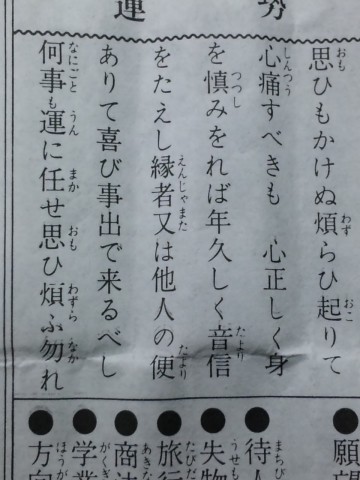 運勢
思ひもかけぬ煩らひ起りて
心痛すべきも　心正しく身
を慎みをれば年久しく音信
をたえし縁者又は他人の便
ありて喜び事出で来るべし
何事も運に任せ思ひ煩ふ勿れ
●願望
●待人
●失物
●旅行
●商法
●学業
●方向